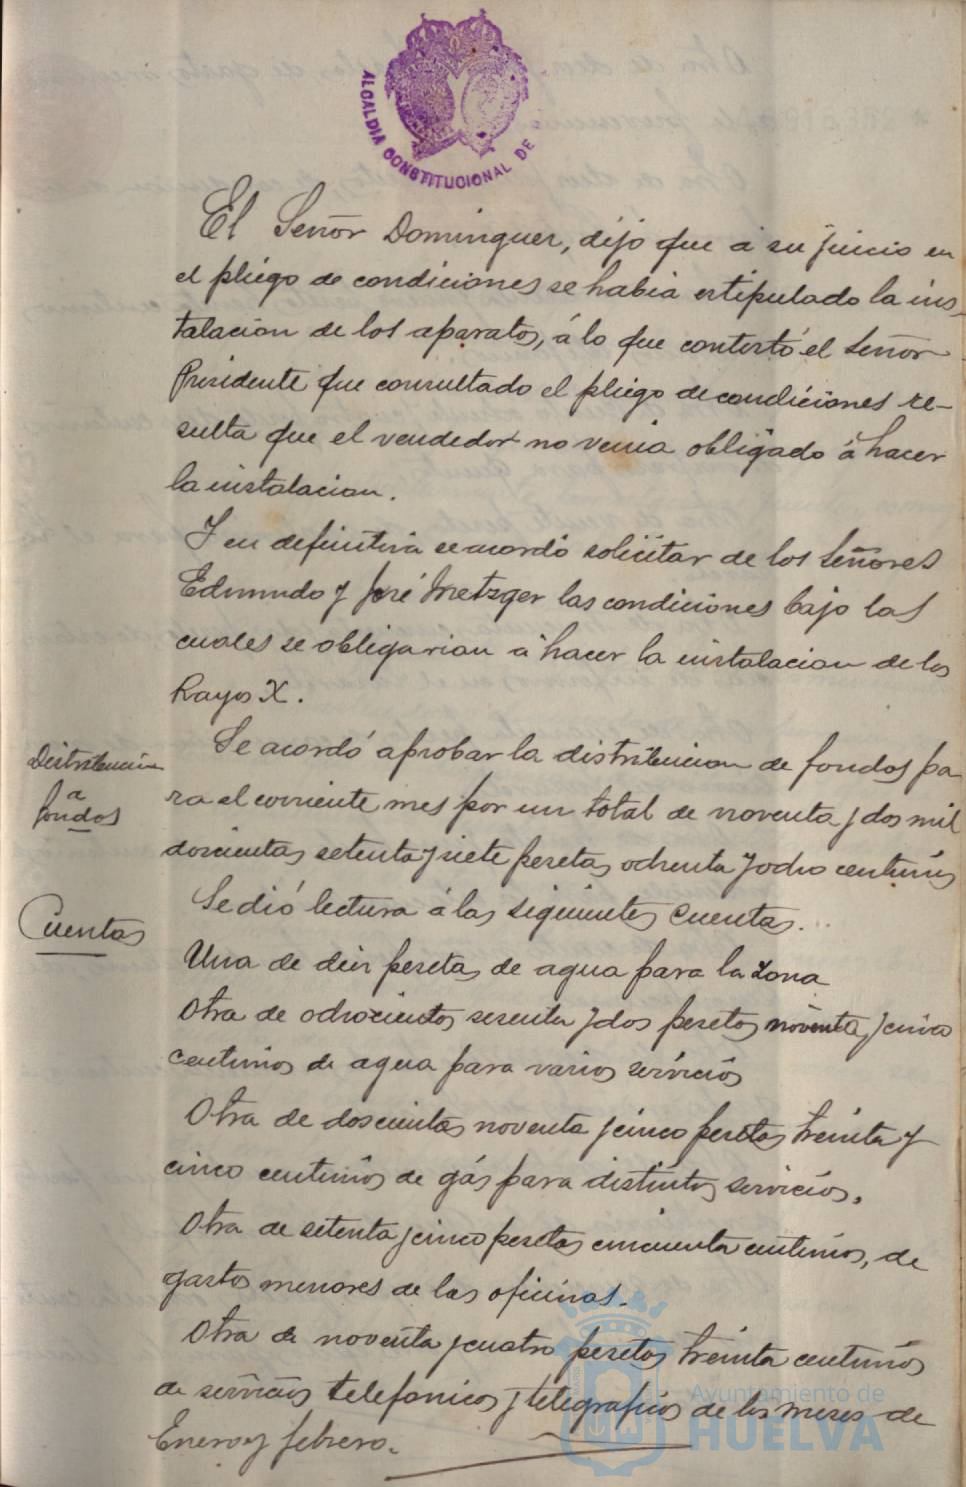 ALCALDIA CONSTITUCIONAL DE
El Señor Dominguez, dijo que á su juicio en
el pliego de condiciones se habia estipulado la ins-
talacion de los aparatos, á lo que contestó el Señor
Presidente que consultado el pliego de condiciones re-
sulta que el vendedor no venia obligado á hacer
la instalacion.
Y en definitiva se acordó solicitar de los Señores
Edmundo y José Metzger las condiciones bajo las
cuales se obligarian á hacer la instalacion de los
Rayos X.
Distribucion
a
fondos
Se acordó aprobar la distribucion de fondos pa
ra el corriente mes por un total de noventa y dos mil
doscientas setenta y siete pesetas ochenta y ocho centimos
Cuentas
Se dió lectura á las siguientes cuentas.
Una de diez pesetas de agua para la zona
Otra de ochocientas sesenta y dos pesetas noventa y cinco
centimos de agua para varios servicios
Otra de doscientas noventa y cinco pesetas treinta y
cinco centimos de gás para distintos servicios.
Otra de setenta y cinco pesetas cincuenta centimos, de
gastos menores de las oficinas.
Otra de noventa y cuatro pesetas treinta centimos
de servicios telefonicos y telegraficos de los meses de
Enero y febrero.
Ayuntamiento de
HUELVA